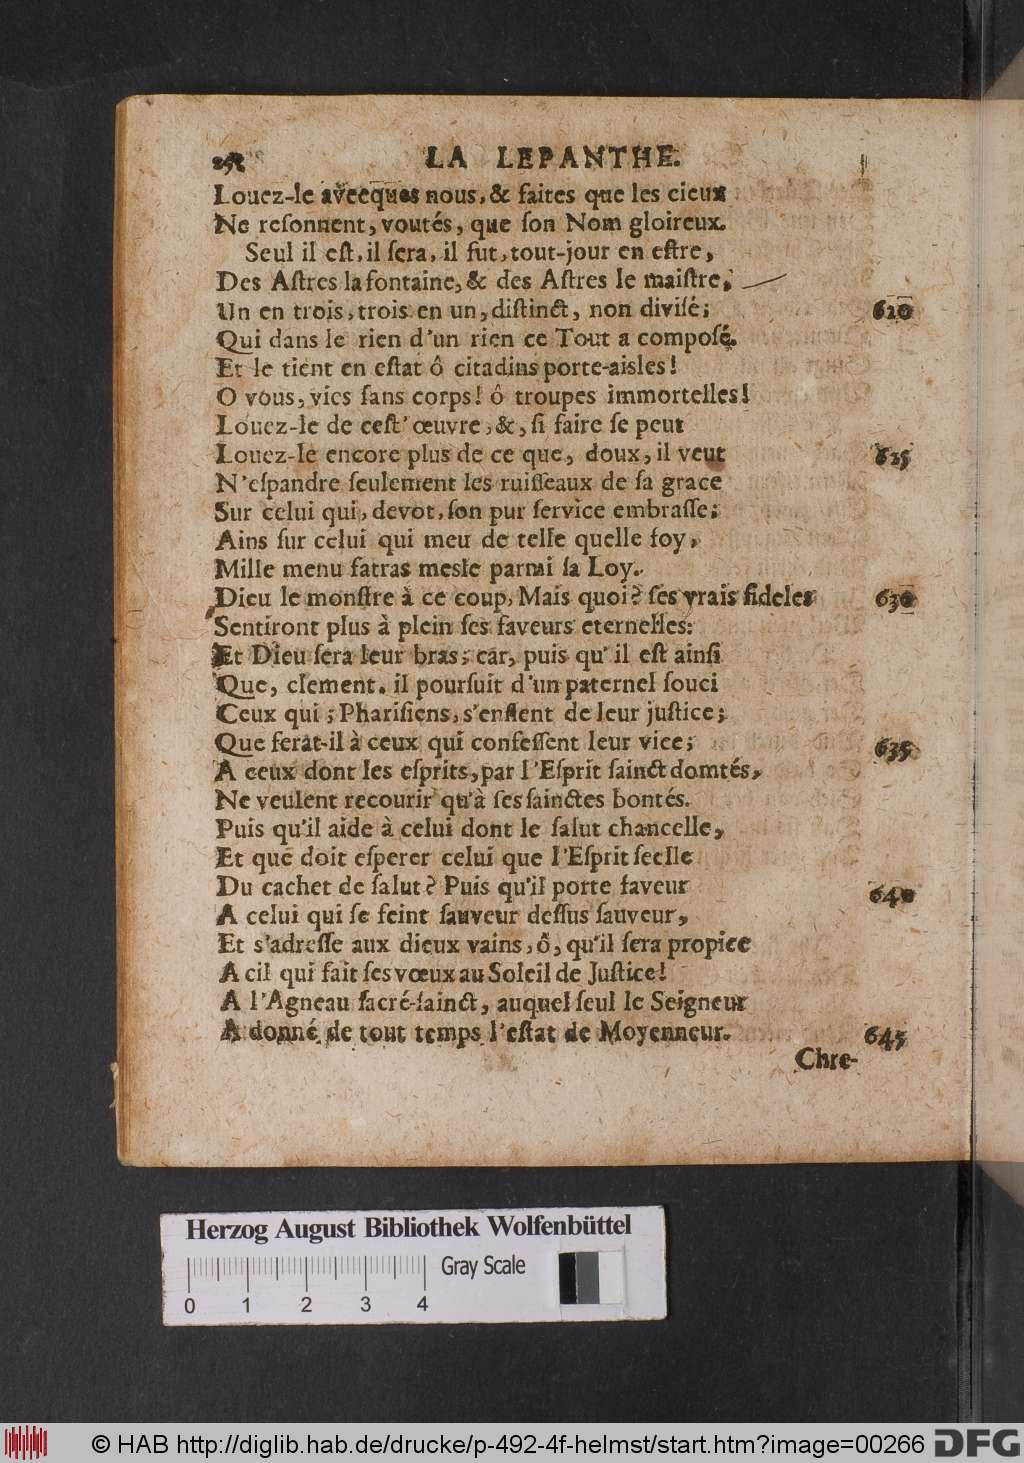 252 LA LEPANTHE.
Louez-le avecques nous, & faites que les cieux
Ne resonnent, voutés, que ſon Nom gloireux.
Seul il eſt, il ſera, il fut, tout-jour en eſtre,
Des Aſtres la fontaine, & des Aſtres le maiſtre,
Un en trois, trois en un, diſtinct, non diviſé; 620
Qui dans le rien d'un rien ce Tout a compoſé.
Et le tient en eſtat ô citadins porte-aisles!
O vous, vies ſans corps! ô troupes immortelles!
Louez-le de ceſt' œuvre, &, ſi faire ſe peut
Louez-le encore plus de ce que, doux, il veut 625
N'eſpandre ſeulement les ruiſſeaux de ſa grace
Sur celui qui, devot, ſon pur ſervice embraſſe;
Ains ſur celui qui meu de telle quelle foy,
Mille menu fatras mesle parmi ſa Loy.
Dieu le monſtre à ce coup, Mais quoi? ſes vrais fideles 630
Sentiront plus à plein ſes faveurs eternelles:
Et Dieu ſera leur bras; car, puis qu'il eſt ainſi
Que, clement. il pourſuit d'un paternel ſouci
Ceux qui; Phariſiens, s'enflent de leur juſtice;
Que ferat-il à ceux qui confeſſent leur vice; 635
A ceux dont les eſprits, par l'Eſprit ſainct domtés,
Ne veulent recourir qu'à ſes ſainctes bontés.
Puis qu'il aide à celui dont le ſalut chancelle,
Et que doit eſperer celui que l'Eſprit ſeelle
Du cachet de ſalut? Puis qu'il porte faveur 640
A celui qui ſe feint ſauveur deſſus ſauveur,
Et s'adreſſe aux dieux vains, ô, qu'il ſera propice
A cil qui fait ſes vœux au Soleil de Juſtice!
A l'Agneau ſacré-ſainct, auquel ſeul le Seigneur
A donné de tout temps l'eſtat de Moyenneur. 645
Chre-
Herzog August Bibliothek Wolfenbüttel
Gray Scale
0 1 2 3 4
© HAB http://diglib.hab.de/drucke/p-492-4f-helmst/start.htm?image=00266 DFG